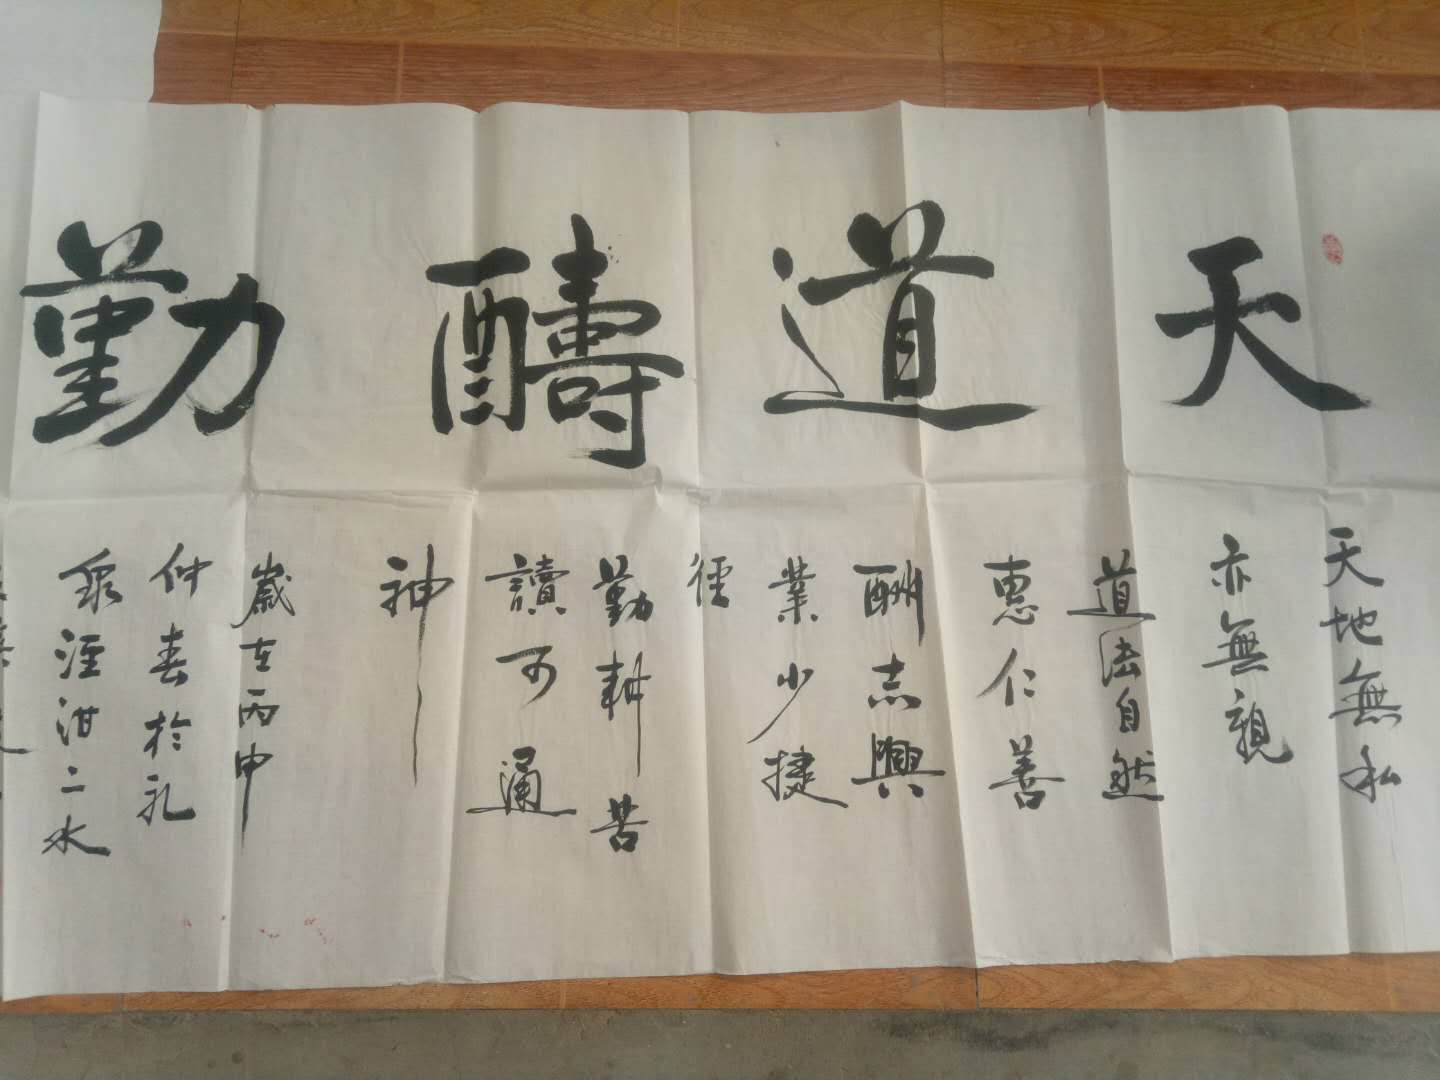 天道醻勤
天地無私
亦無親
道法自然
惠仁善
酬志興
業少捷
徑
勤耕苦
讀可通
神
歲在丙申
仲春於礼
泉涇泔二水